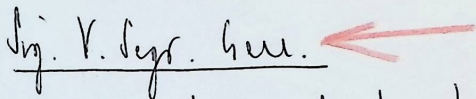 Sig. V. Segr. Gen.